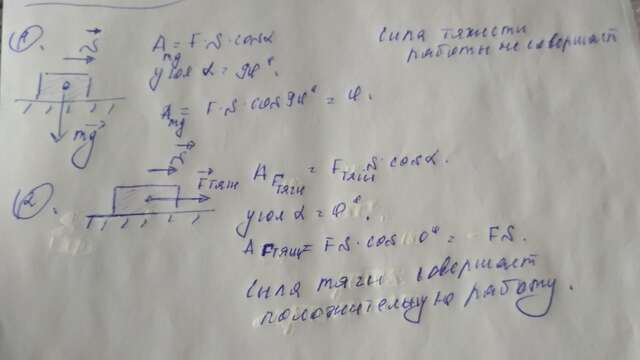 1.
S
mg
A mg = F·S·cosα
угол α = 90°.
A mg = F·S·cos 90° = 0.
Сила тяжести
работы не совершает
2.
S
Fтяж
A Fтяги = Fтяги S·cosα.
угол α = 0°.
A Fтящ = FS·cos 0° = FS.
Сила тяги совершает
положительную работу.